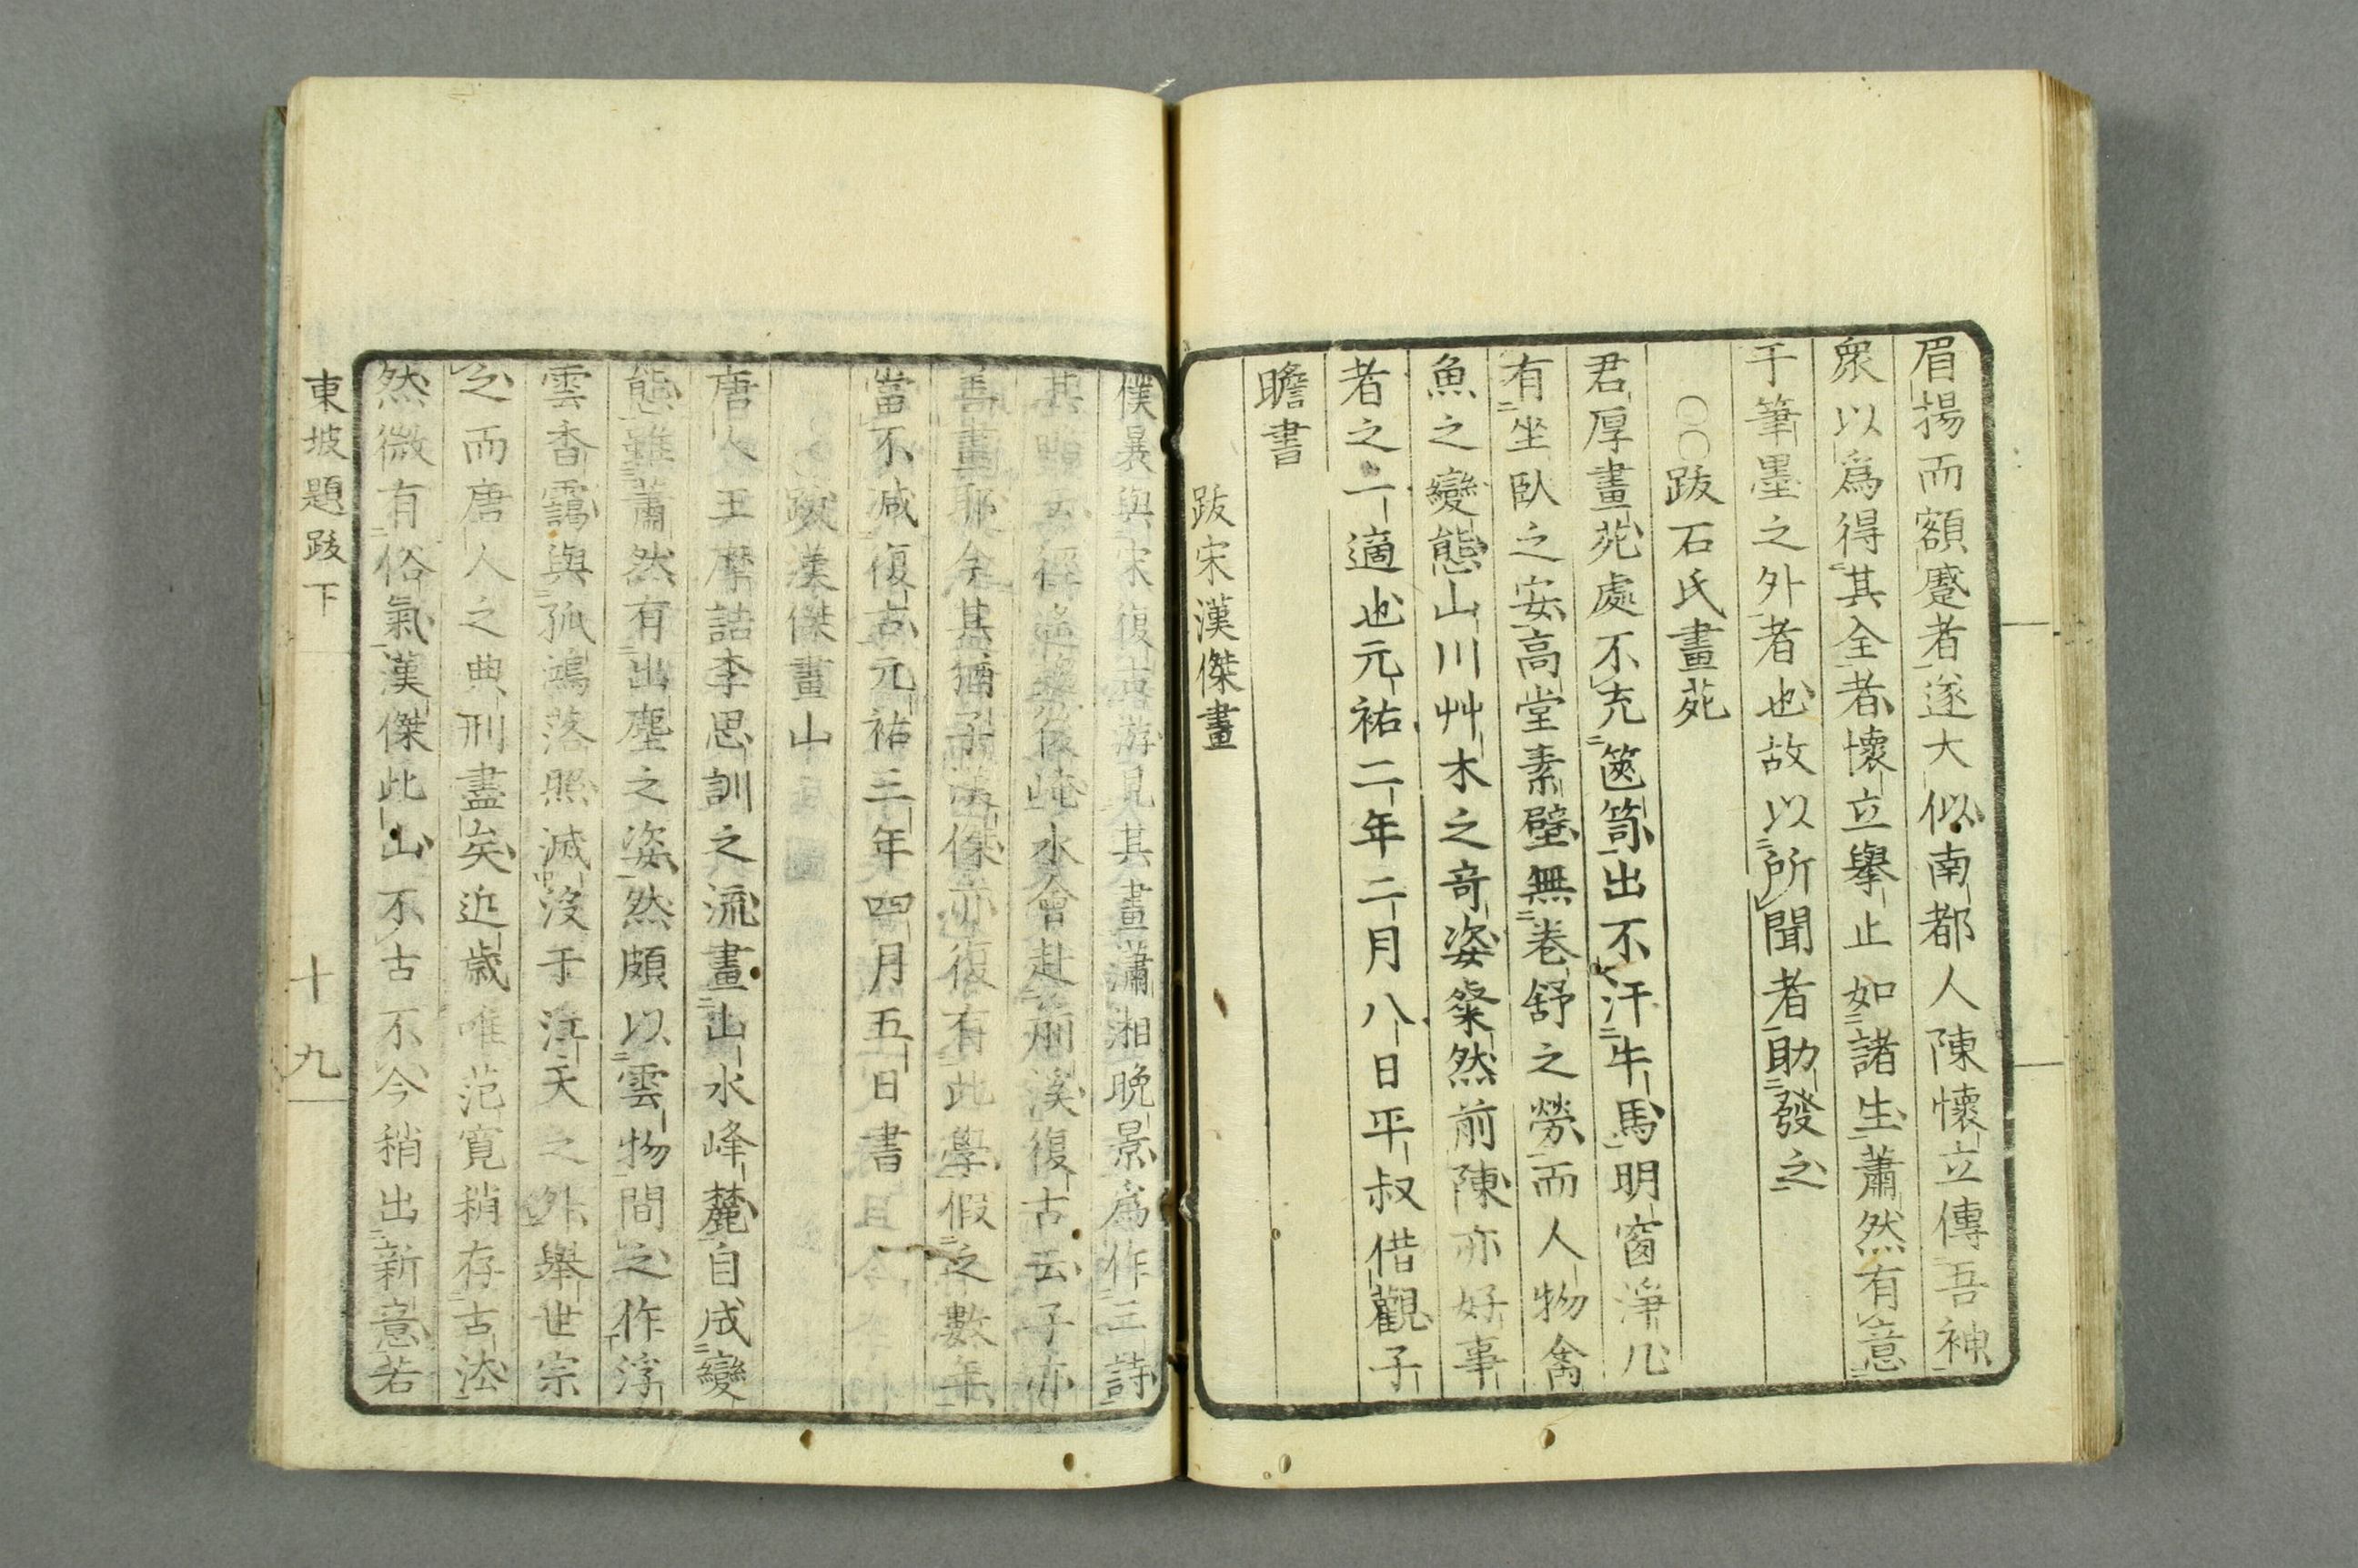 眉揚而額蹙者遂大似南都人陳懷立傳吾神
衆以爲得其全者懷立舉止如諸生蕭然有意
于筆墨之外者也故以所聞者助發之
○○跋石氏畫苑
君厚畫苑處不充篋笥出不汗牛馬明窗淨几
有坐臥之安高堂素壁無卷舒之勞而人物禽
魚之變態山川艸木之奇姿粲然前陳亦好事
者之一適也元祐二年二月八日平叔借觀子
瞻書
跋宋漢傑畫
僕曩與宋復古游見其畫瀟湘晚景爲作三詩
其略云徑遙趂後崦水會赴前溪復古云子亦
善畫耶今其猶子漢傑亦復有此學假之數年
當不減復古元祐三年四月五日書
跋漢傑畫山
唐人王摩詰李思訓之流畫山水峰麓自成變
態雖蕭然有出塵之姿然頗以雲物間之作浮
雲杳靄與孤鴻落照滅沒于江天之外舉世宗
之而唐人之典刑盡矣近歲唯范寛稍存古法
然微有俗氣漢傑此山不古不今稍出新意若
東坡題跋下
十九